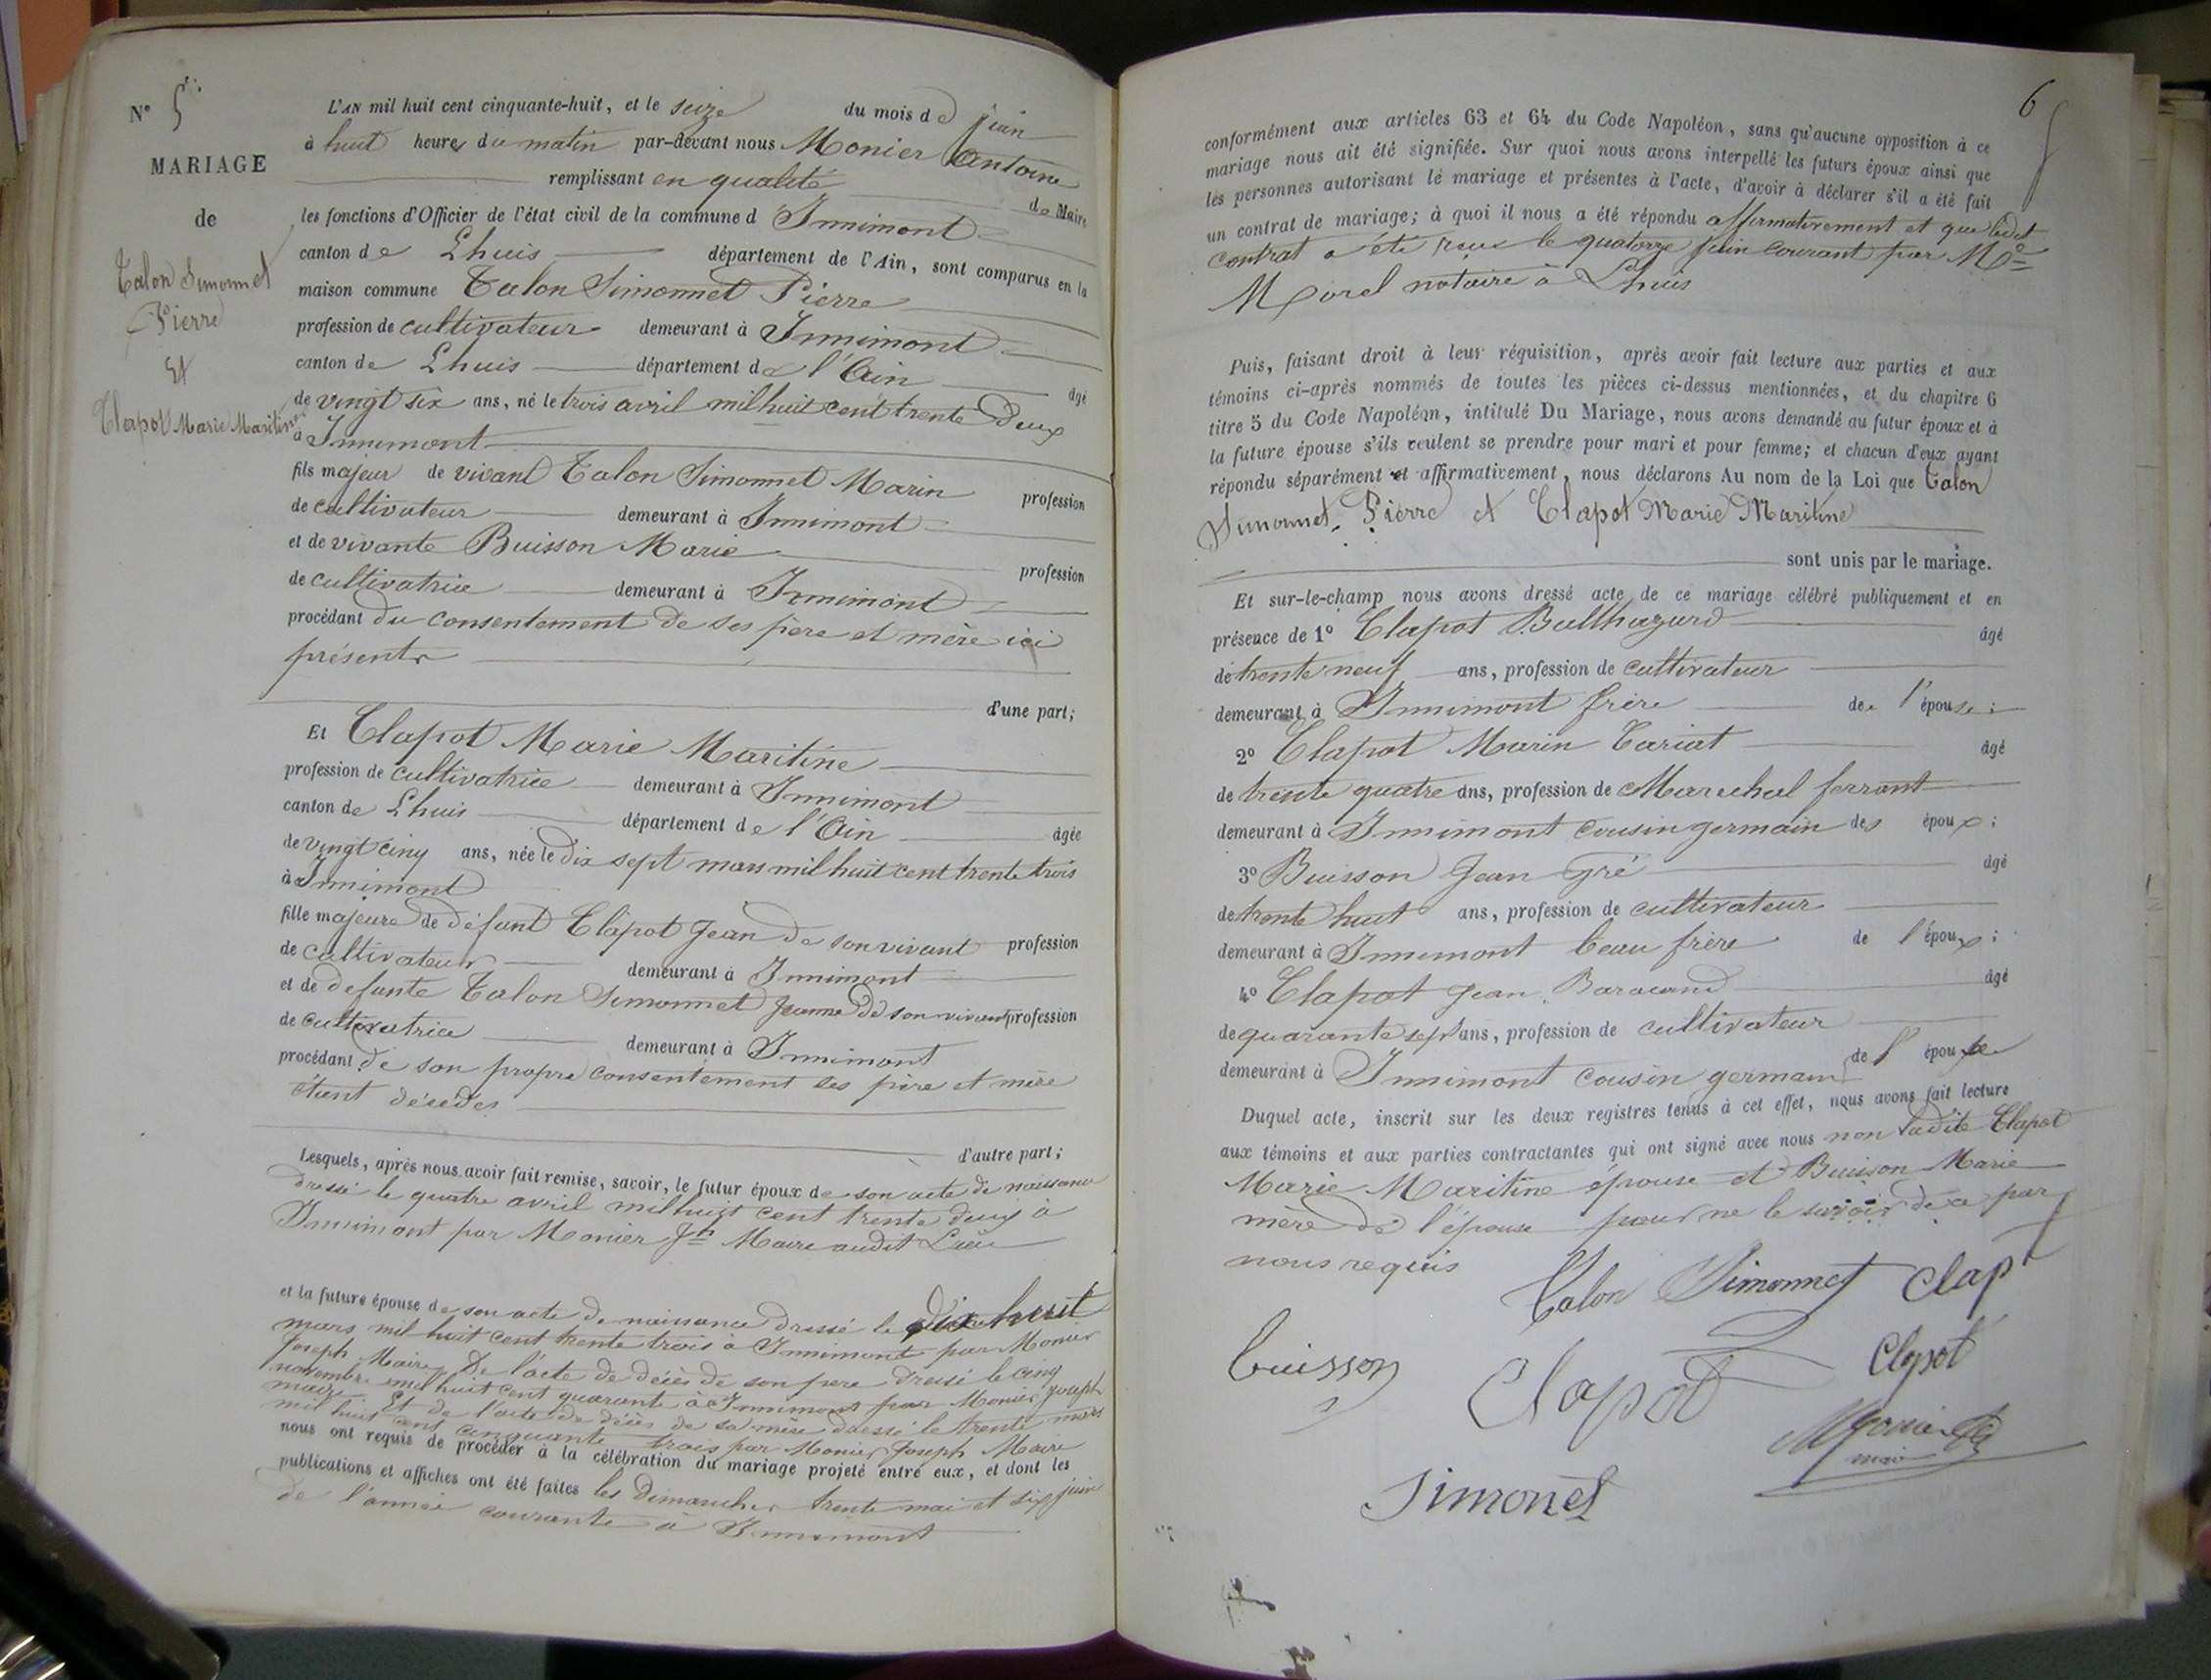 N° 5
MARIAGE
de
Talon Simonnet
Pierre
Et
Clapot Marie Maritine
L'AN mil huit cent cinquante-huit, et le seize du mois de juin
à huit heures du matin par-devant nous Monier Antoine
remplissant en qualité de Maire
les fonctions d'Officier de l'état civil de la commune d Innimont
canton de Lhuis département de l'Ain, sont comparus en la
maison commune Talon Simonnet Pierre
profession de cultivateur demeurant à Innimont
canton de Lhuis département de l'Ain âgé
de vingt six ans, né le trois avril mil huit cent trente deux
à Innimont
fils majeur de vivant Talon Simonnet Marin profession
de cultivateur demeurant à Innimont
et de vivante Buisson Marie profession
de cultivatrice demeurant à Innimont
procédant du consentement de ses père et mère ici
présents
d'une part;
Et Clapot Marie Maritine
profession de cultivatrice demeurant à Innimont
canton de Lhuis département de l'Ain âgée
de vingt cinq ans, née le dix sept mars mil huit cent trente trois
à Innimont
fille majeure de défunt Clapot Jean de son vivant profession
de cultivateur demeurant à Innimont
et de defunte Talon Simonnet Jeanne de son vivant profession
de cultivatrice demeurant à Innimont
procédant de son propre consentement ses père et mère
étant décédés
d'autre part;
Lesquels, après nous avoir fait remise, savoir, le futur époux de son acte de naissance
dressé le quatre avril mil huit cent trente deux à
Innimont par Monier Jh Maire audit Lieu
et la future épouse de son acte de naissance dressé le dix huit
mars mil huit cent trente trois à Innimont par Monier
Joseph Maire, De l'acte de décès de son pere dressé le cinq
novembre mil huit cent quarante à Innimont par Monier Joseph
maire Et de l'acte de décès de sa mère dressé le trente mars
mil huit cent cinquante trois par Monier Joseph Maire
nous ont requis de procéder à la célébration du mariage projeté entre eux, et dont les
publications et affiches ont été faites les dimanches trente mai et six juin
de l'année courante à Innimont
6
conformément aux articles 63 et 64 du Code Napoléon, sans qu'aucune opposition à ce
mariage nous ait été signifiée. Sur quoi nous avons interpellé les futurs époux ainsi que
les personnes autorisant le mariage et présentes à l'acte, d'avoir à déclarer s'il a été fait
un contrat de mariage; à quoi il nous a été répondu affirmativement et que ledit
contrat a été reçu le quatorze juin courant par Me
Morel notaire à Lhuis
Puis, faisant droit à leur réquisition, après avoir fait lecture aux parties et aux
témoins ci-après nommés de toutes les pièces ci-dessus mentionnées, et du chapitre 6
titre 5 du Code Napoléon, intitulé Du Mariage, nous avons demandé au futur époux et à
la future épouse s'ils veulent se prendre pour mari et pour femme; et chacun d'eux ayant
répondu séparément et affirmativement, nous déclarons Au nom de la Loi que Talon
Simonnet Pierre et Clapot Marie Maritine
sont unis par le mariage.
Et sur-le-champ nous avons dressé acte de ce mariage célébré publiquement et en
présence de 1° Clapot Balthazard âgé
de trente neuf ans, profession de cultivateur
demeurant à Innimont frère de l'épouse;
2° Clapot Marin Tariat âgé
de trente quatre ans, profession de Marechal ferrant
demeurant à Innimont cousin germain des époux;
3° Buisson Jean Gré âgé
de trente huit ans, profession de cultivateur
demeurant à Innimont beau frère de l'époux;
4° Clapot Jean Baracand âgé
de quarante sept ans, profession de cultivateur
demeurant à Innimont cousin germain de l'épouse
Duquel acte, inscrit sur les deux registres tenus à cet effet, nous avons fait lecture
aux témoins et aux parties contractantes qui ont signé avec nous non ladite Clapot
Marie Maritine épouse et Buisson Marie
mère de l'épouse pour ne le savoir de ce par
nous requis
Talon Simonnet Clap
buisson Clapot Clapot
Monier
maire
Simonet